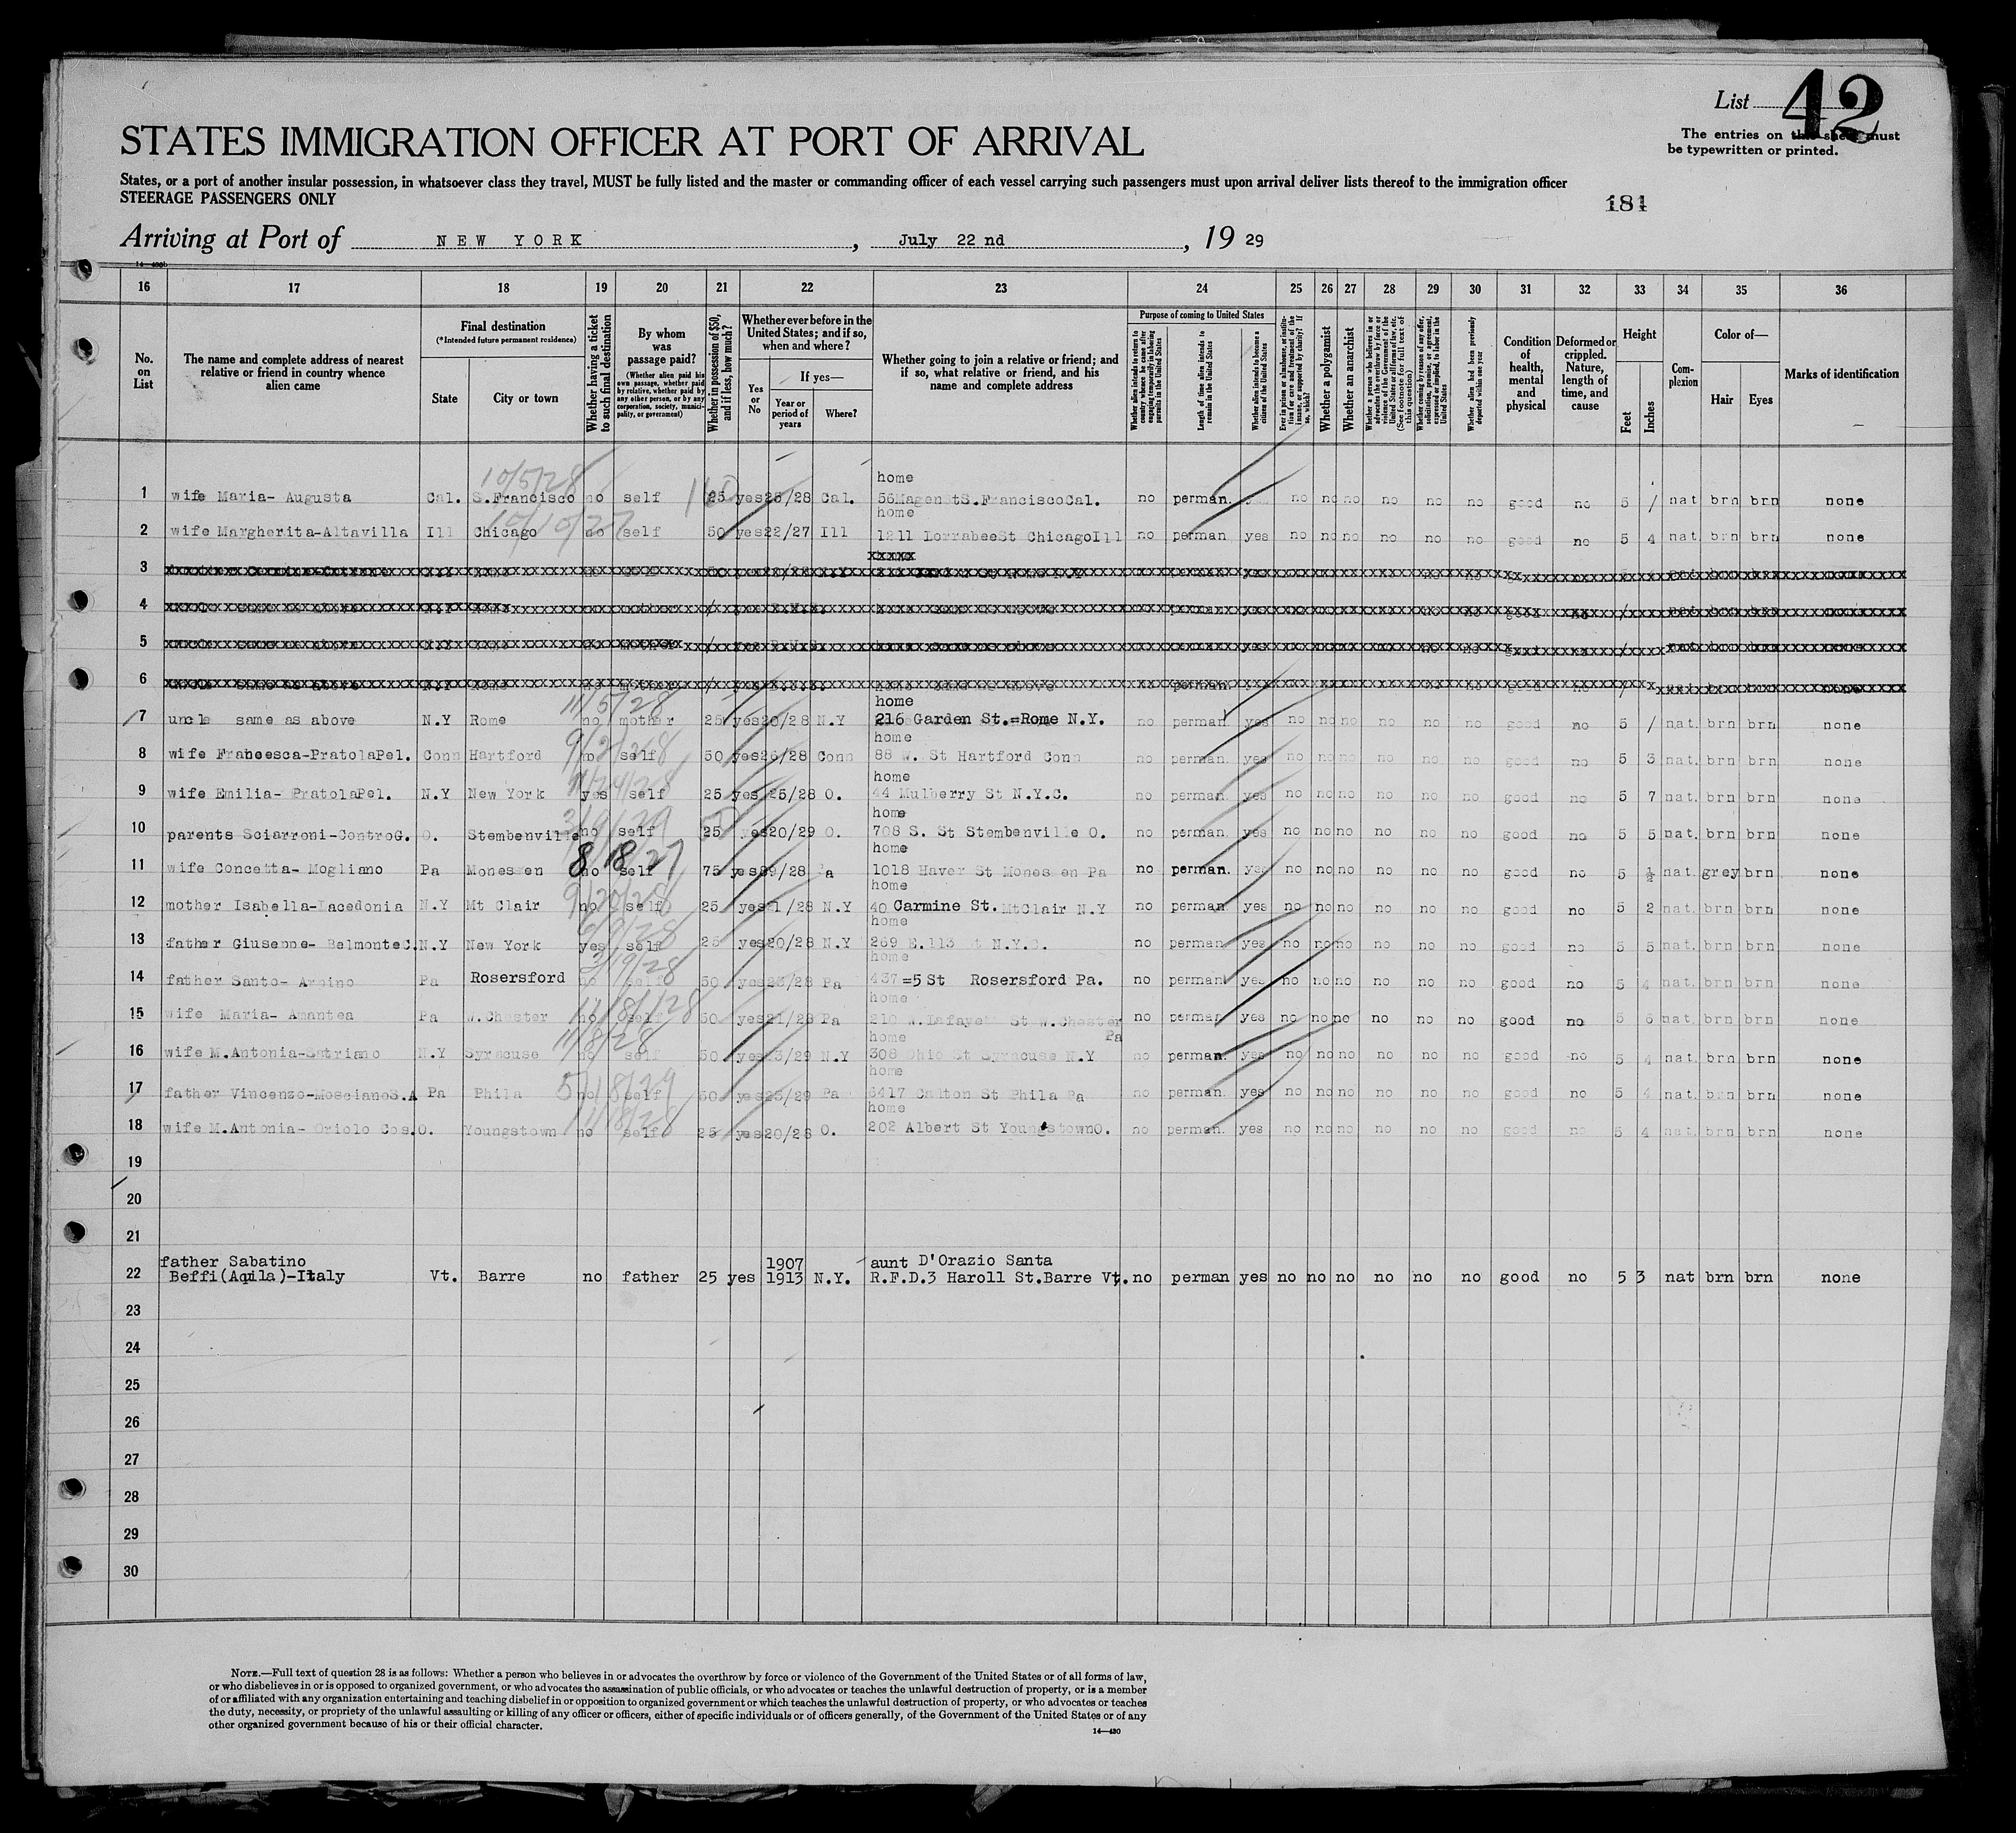 List 42
The entries on this sheet must
be typewritten or printed.
STATES IMMIGRATION OFFICER AT PORT OF ARRIVAL
States, or a port of another insular possession, in whatsoever class they travel, MUST be fully listed and the master or commanding officer of each vessel carrying such passengers must upon arrival deliver lists thereof to the immigration officer
STEERAGE PASSENGERS ONLY
181
Arriving at Port of NEW YORK, July 22 nd, 19 29
16 17 18 19 20 21 22 23 24 25 26 27 28 29 30 31 32 33 34 35 36
No. on List
The name and complete address of nearest relative or friend in country whence alien came
Final destination
(*Intended future permanent residence)
State
City or town
Whether having a ticket to such final destination
By whom was passage paid?
(Whether alien paid his own passage, whether paid by relative, whether paid by any other person, or by any corporation, society, municipality, or government)
Whether in possession of $50, and if less, how much?
Whether ever before in the United States; and if so, when and where?
Yes or No
If yes—
Year or period of years
Where?
Whether going to join a relative or friend; and if so, what relative or friend, and his name and complete address
Purpose of coming to United States
Whether alien intends to return to country whence he came after engaging temporarily in laboring pursuits in the United States
Length of time alien intends to remain in the United States
Whether alien intends to become a citizen of the United States
Ever in prison or almshouse, or institution for care and treatment of the insane, or supported by charity? If so, which?
Whether a polygamist
Whether an anarchist
Whether a person who believes in or advocates the overthrow by force or violence of the Government of the United States or all forms of law, etc. (See footnote for full text of this question)
Whether coming by reason of any offer, solicitation, promise, or agreement, expressed or implied, to labor in the United States
Whether alien had been previously deported within one year
Condition of health, mental and physical
Deformed or crippled. Nature, length of time, and cause
Height
Feet
Inches
Complexion
Color of—
Hair
Eyes
Marks of identification
10/5/28 home
1 wife Maria- Augusta Cal. S.Francisco no self 25 yes 28 Cal. S.FranciscoCal. no perman. no no no no no no good no 5 / nat brn brn none
10/10/27 home
2 wife Margherita-Altavilla Ill Chicago no self 50 yes 22/27 Ill 1211 LorrabeeSt ChicagoIll no perman. yes no no no no no no good no 5 4 nat. brn brn none
xxxxx
3
4
5
6
11/5/28 home
7 uncle same as above N.Y Rome no mother 25 yes 20/28 N.Y 216 Garden St.=Rome N.Y. no perman. yes no no no no no no good no 5 / nat. brn brn none
home
8 wife Francesca-PratolaPel. Conn Hartford no self 50 yes 26/28 Conn 88 W. St Hartford Conn no perman. yes no no no no no no good no 5 3 nat. brn brn none
home
9 wife Emilia- PratolaPel. N.Y New York yes self 25 yes 25/28 O. 44 Mulberry St N.Y.C. no perman. yes no no no no no no good no 5 7 nat. brn brn none
home
10 parents Sciarroni-ControG. O. Stembenville no self 25 yes 20/29 O. 708 S. St Stembenville O. no perman. yes no no no no no no good no 5 5 nat. brn brn none
8 18/27 home
11 wife Concetta- Mogliano Pa Monessen no self 75 yes 9/28 Pa 1018 Haver St Monessen Pa no perman. yes no no no no no no good no 5 ½ nat. grey brn none
home
12 mother Isabella-Lacedonia N.Y Mt Clair no self 25 yes 1/28 N.Y 40 Carmine St. MtClair N.Y no perman. yes no no no no no no good no 5 2 nat. brn brn none
home
13 father Giuseppe- BelmonteC. N.Y New York yes self 25 yes 20/28 N.Y 269 E.113 St N.Y.C. no perman. yes no no no no no no good no 5 5 nat. brn brn none
3/19/28 home
14 father Santo- Arpino Pa Rosersford no self 50 yes 28 Pa 437=5 St Rosersford Pa. no perman. yes no no no no no no good no 5 4 nat. brn brn none
home
15 wife Maria- Amantea Pa W.Chester no self 50 yes 21/28 Pa 210 W.Lafayett St W.Chester Pa no perman. yes no no no no no no good no 5 6 nat. brn brn none
11/8/28 home
16 wife M.Antonia-Satriano N.Y Syracuse no self 50 yes 3/29 N.Y 308 Ohio St Syracuse N.Y no perman. yes no no no no no no good no 5 4 nat. brn brn none
home
17 father Vincenzo-MoscianoS.A Pa Phila no self 50 yes 25/29 Pa 6417 St Phila Pa no perman. yes no no no no no no good no 5 4 nat. brn brn none
11/18/28 home
18 wife M.Antonia- Oriolo Cos. O. Youngstown no self 25 yes 20/28 O. 202 Albert St YoungstownO. no perman. yes no no no no no no good no 5 4 nat. brn brn none
19
20
21
father Sabatino 1907 aunt D'Orazio Santa
22 Beffi(Aqila)-Italy Vt. Barre no father 25 yes 1913 N.Y. R.F.D.3 Haroll St.Barre Vt. no perman yes no no no no no no good no 5 3 nat brn brn none
23
24
25
26
27
28
29
30
NOTE.—Full text of question 28 is as follows: Whether a person who believes in or advocates the overthrow by force or violence of the Government of the United States or of all forms of law,
or who disbelieves in or is opposed to organized government, or who advocates the assassination of public officials, or who advocates or teaches the unlawful destruction of property, or is a member
of or affiliated with any organization entertaining and teaching disbelief in or opposition to organized government or which teaches the unlawful destruction of property, or who advocates or teaches
the duty, necessity, or propriety of the unlawful assaulting or killing of any officer or officers, either of specific individuals or of officers generally, of the Government of the United States or of any
other organized government because of his or their official character.
14—430